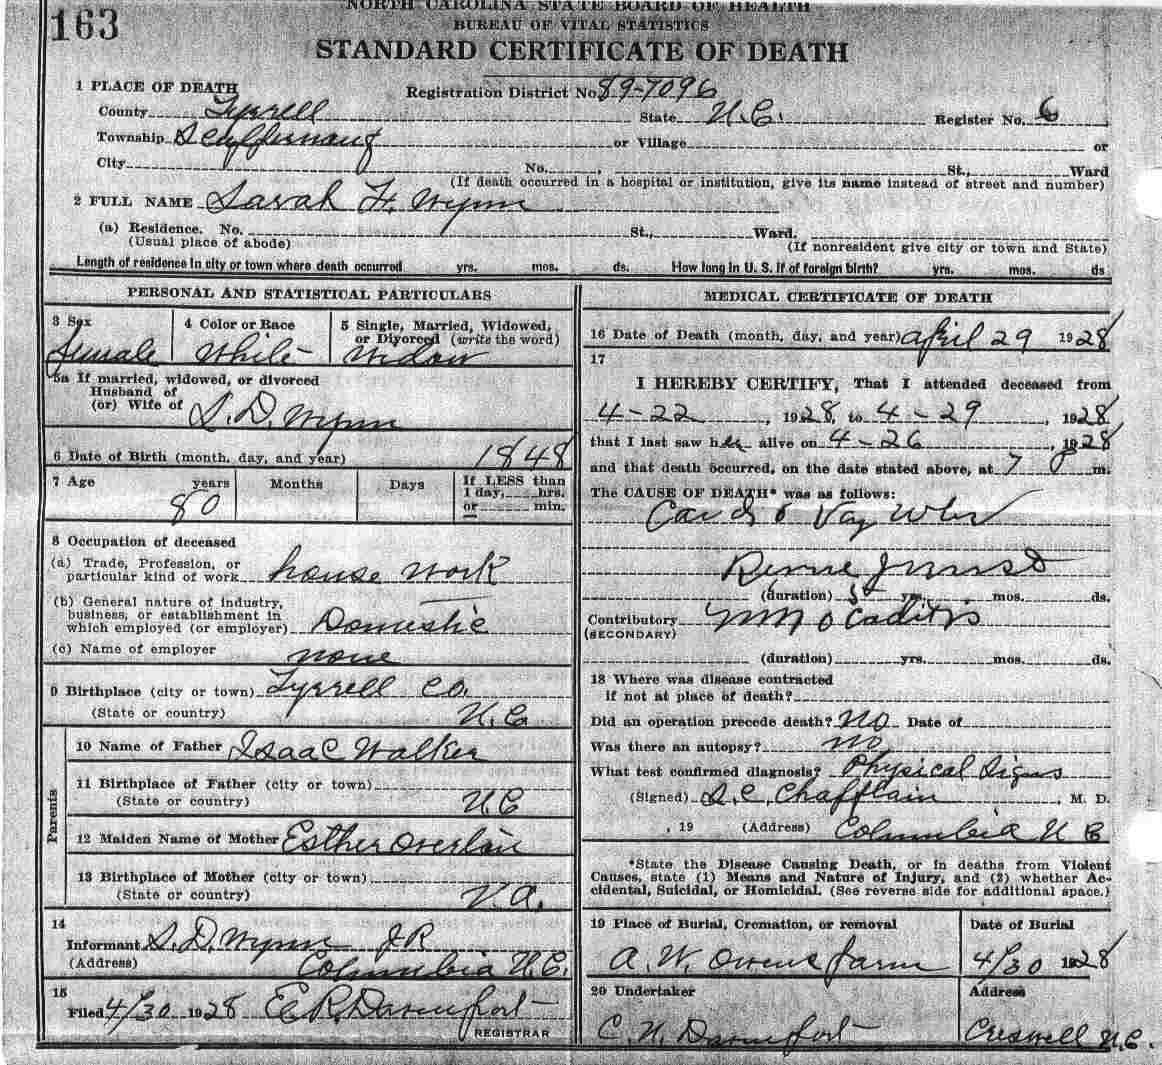 163
NORTH CAROLINA STATE BOARD OF HEALTH
BUREAU OF VITAL STATISTICS
STANDARD CERTIFICATE OF DEATH
1 PLACE OF DEATH
Registration District No. 89-7096
County Tyrrell State N.C. Register No. 6
Township or Village or
City No. , St., Ward
(If death occurred in a hospital or institution, give its name instead of street and number)
2 FULL NAME Sarah F. Wynn
(a) Residence. No. St., Ward.
(Usual place of abode) (If nonresident give city or town and State)
Length of residence in city or town where death occurred yrs. mos. ds. How long in U. S. if of foreign birth? yrs. mos. ds
PERSONAL AND STATISTICAL PARTICULARS
3 Sex
female
4 Color or Race
White
5 Single, Married, Widowed,
or Divorced (write the word)
Widow
5a If married, widowed, or divorced
Husband of
(or) Wife of S. D. Wynn
6 Date of Birth (month, day, and year) 1848
7 Age years Months Days If LESS than
1 day, hrs.
80 or min.
8 Occupation of deceased
(a) Trade, Profession, or
particular kind of work house work
(b) General nature of industry,
business, or establishment in
which employed (or employer) Domestic
(c) Name of employer none
9 Birthplace (city or town) Tyrrell Co.
(State or country) N.C
Parents
10 Name of Father Isaac Walker
11 Birthplace of Father (city or town)
(State or country) N.C
12 Maiden Name of Mother Esther
13 Birthplace of Mother (city or town)
(State or country) V.A.
14
Informant S. D. Wynn JR
(Address) Columbia N.C.
15
Filed 4/30 1928 E. R. Davenport
REGISTRAR
MEDICAL CERTIFICATE OF DEATH
16 Date of Death (month, day, and year) April 29 1928
17
I HEREBY CERTIFY, That I attended deceased from
4-22 , 1928, to 4-29 , 1928
that I last saw her alive on 4-26 , 1928
and that death occurred, on the date stated above, at 7 P m.
The CAUSE OF DEATH* was as follows:
(duration) 5 yrs. mos. ds.
Contributory
(SECONDARY)
(duration) yrs. mos. ds.
18 Where was disease contracted
if not at place of death?
Did an operation precede death? No Date of
Was there an autopsy? no
What test confirmed diagnosis? Physical Signs
(Signed) , M. D.
, 19 (Address) Columbia N C
*State the Disease Causing Death, or in deaths from Violent
Causes, state (1) Means and Nature of Injury, and (2) whether Ac-
cidental, Suicidal, or Homicidal. (See reverse side for additional space.)
19 Place of Burial, Cremation, or removal
A. W. Owens farm
Date of Burial
4/30 1928
20 Undertaker
C. N. Davenport
Address
Creswell N.C.